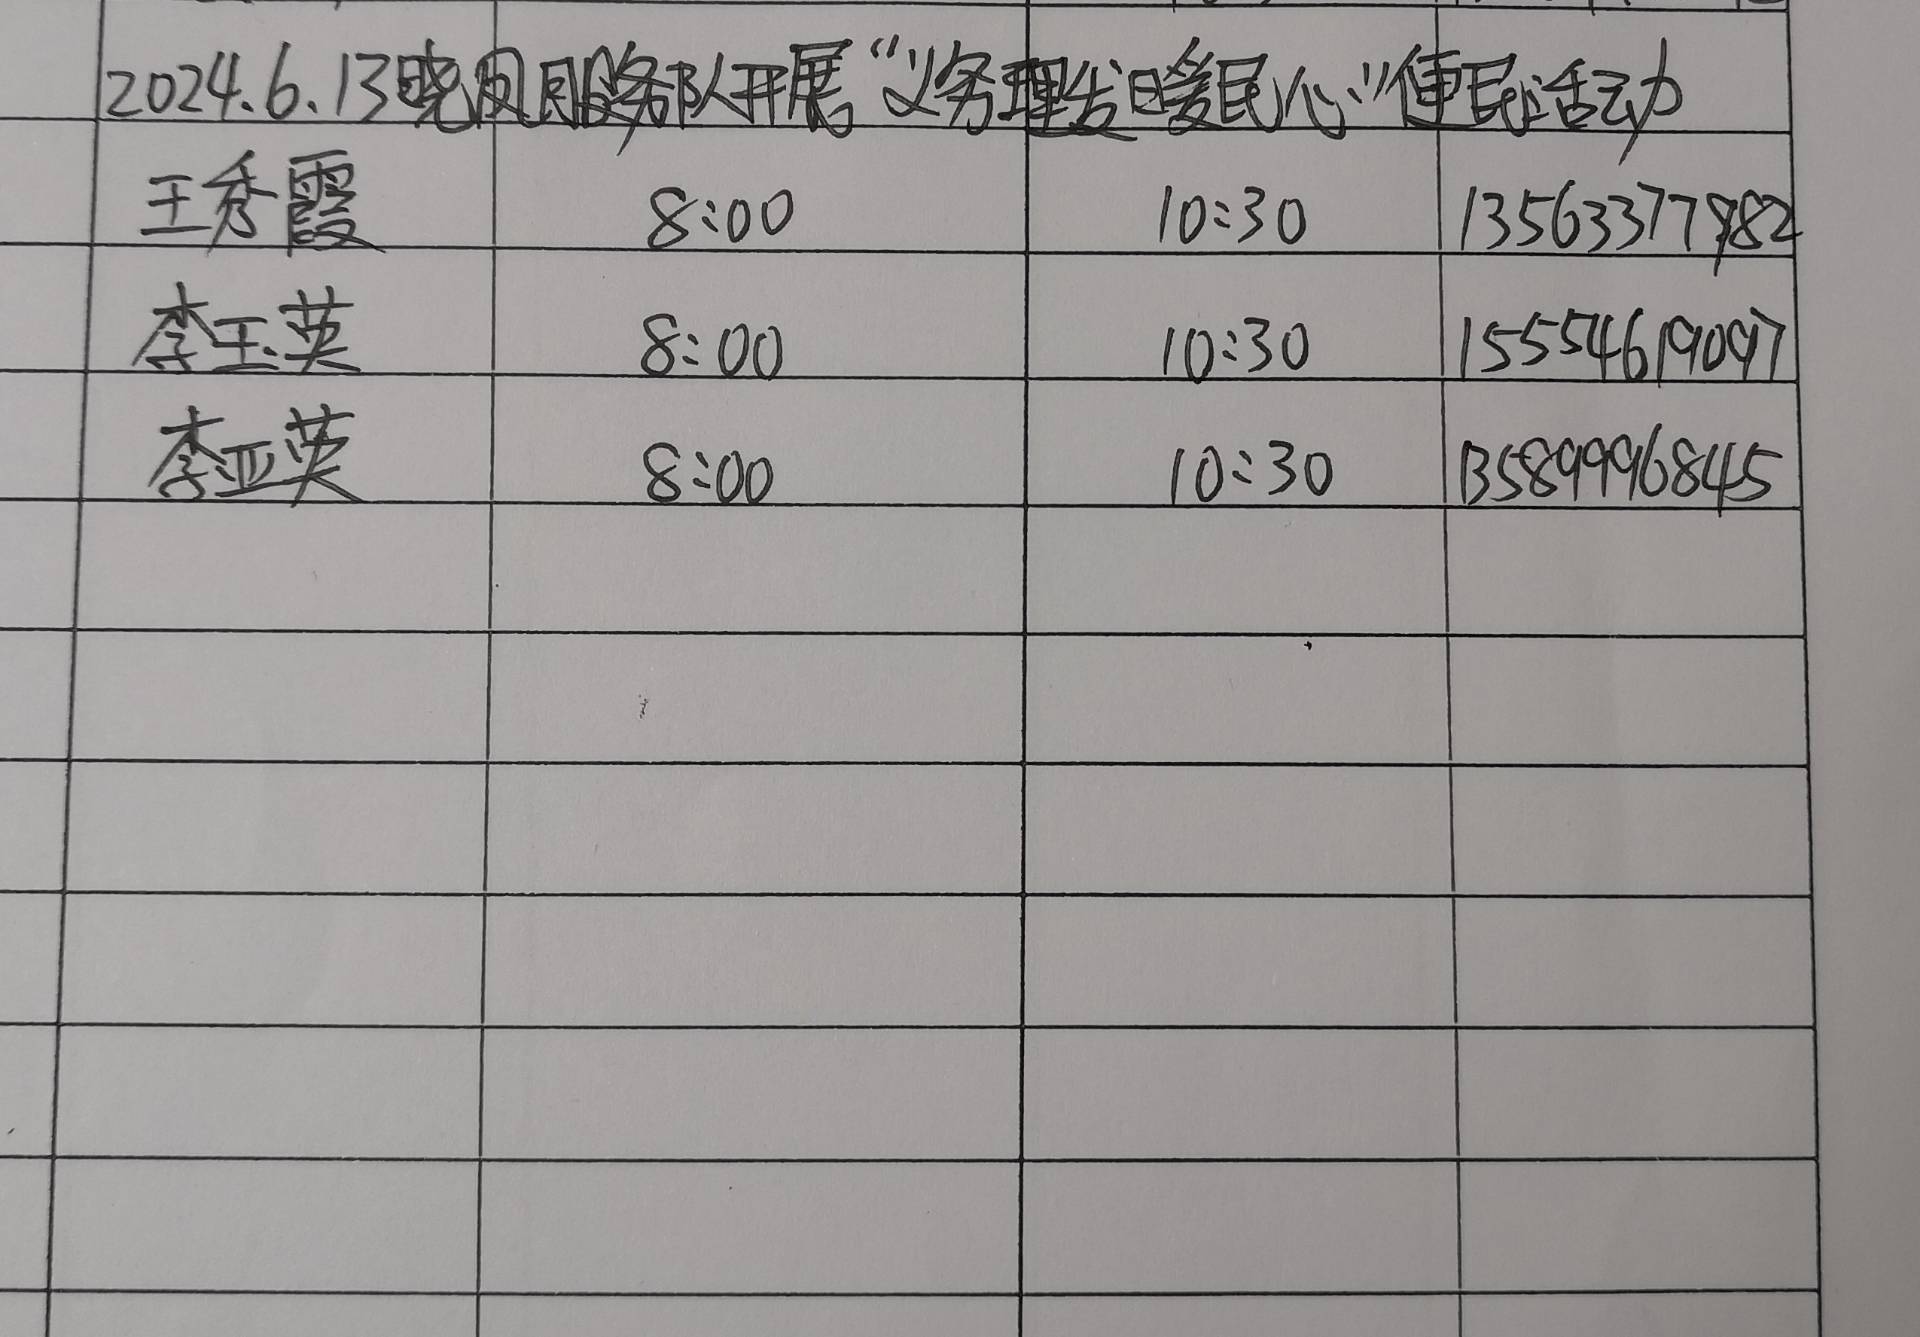 2024.6.13晓凤服务队开展“义务理发暖民心”便民活动
王秀霞 8:00 10:30 13563377982
李玉英 8:00 10:30 15554619097
李亚英 8:00 10:30 13589996845